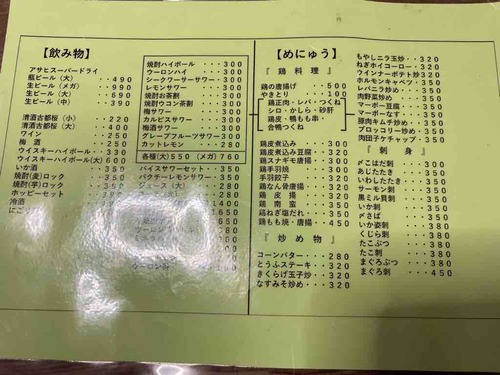 【飲み物】
アサヒスーパードライ
瓶ビール(大)・・490
生ビール(メガ)・・990
生ビール(大)・・690
生ビール(中)・・390
清酒古都桜(小)・・220
清酒古都桜(大)・・400
ワイン・・・・・250
梅酒・・・・・・300
ウイスキーハイボール・・300
ウイスキーハイボール(大)600
いか酒・・・・・350
焼酎(麦)ロック・・350
焼酎(芋)ロック・・350
ホッピーセット・・390
冷酒
にご
焼酎ハイボール・・・300
ウーロンハイ・・・・300
シークワーサーサワー・・300
レモンサワー・・・・300
焼酎お茶割・・・・・300
焼酎ウコン茶割・・・300
梅サワー・・・・・・300
カルピスサワー・・・300
梅酒サワー・・・・・300
グレープフルーツサワー・・300
カットレモン・・・・280
各種(大)550 (メガ)760
バイスサワーセット・・350
バクチーレモンサワー・・350
ジュース(大)・・280
ウーロン茶
【めにゅう】
『鶏料理』
鶏の唐揚げ・・・500
やきとり・・・・100
鶏正肉・レバ・つくね
シロ・かしら・砂肝
鶏皮・鴨もも串・
合鴨つくね
鶏皮煮込み・・・300
鶏皮煮込み豆腐・・320
鶏スナギモ唐揚・・350
鶏手羽焼・・・・300
手羽餃子・・・・320
鶏なん骨唐揚・・350
鶏皮揚・・・・・320
鶏南蛮・・・・・350
鶏ねぎ塩だれ・・350
鶏もも焼・唐揚・・450
『炒め物』
コーンバター・・・320
とうふステーキ・・320
きくらげ玉子炒・・320
なすみそ炒め・・・320
もやしニラ玉炒・・320
ねぎホイコーロー・・320
ウインナーポテト炒320
ホルモンキャベツ・・350
レバニラ炒め・・・350
肉野菜炒め・・・・350
マーボー豆腐・・・350
マーボーなす・・・350
豚肉キムチ炒め・・350
ブロッコリー炒め・・350
肉団子ケチャップ・・350
『刺身』
〆こはだ刺・・・・350
あじたたき・・・・350
いわしたたき・・・350
サーモン刺・・・・350
黒ミル貝刺・・・・350
〆さば・・・・・・350
いか姿刺・・・・・380
くじら刺・・・・・380
たこぶつ・・・・・380
たこ刺・・・・・・380
まぐろぶつ・・・・380
まぐろ刺・・・・・450